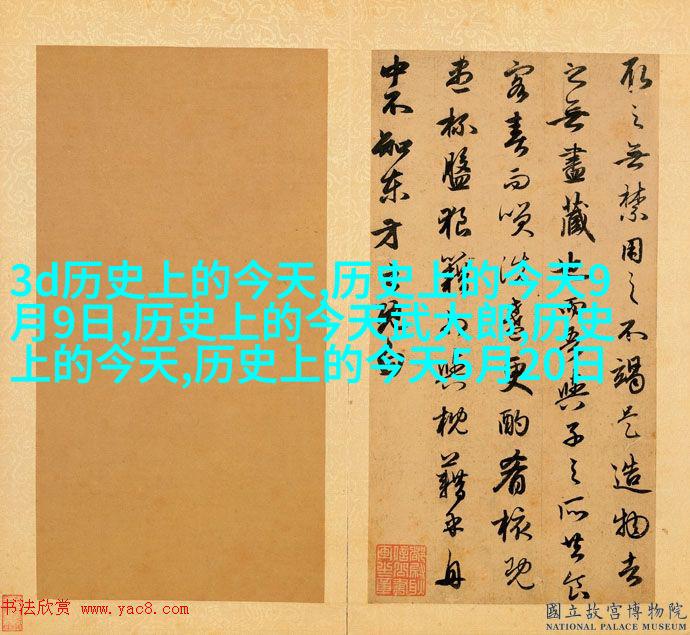 取之無禁用之不竭是造物者
之無盡藏也而吾與子之所共食
客喜而笑洗盞更酌肴核既
盡杯盤狼籍相與枕藉乎舟
中不知東方之既白
3d历史上的今天,历史上的今天9
月9日,历史上的今天武大郎,历史
上的今天,历史上的今天5月20日
书法欣赏 www.yac8.com
國立故宮博物院
NATIONAL PALACE MUSEUM